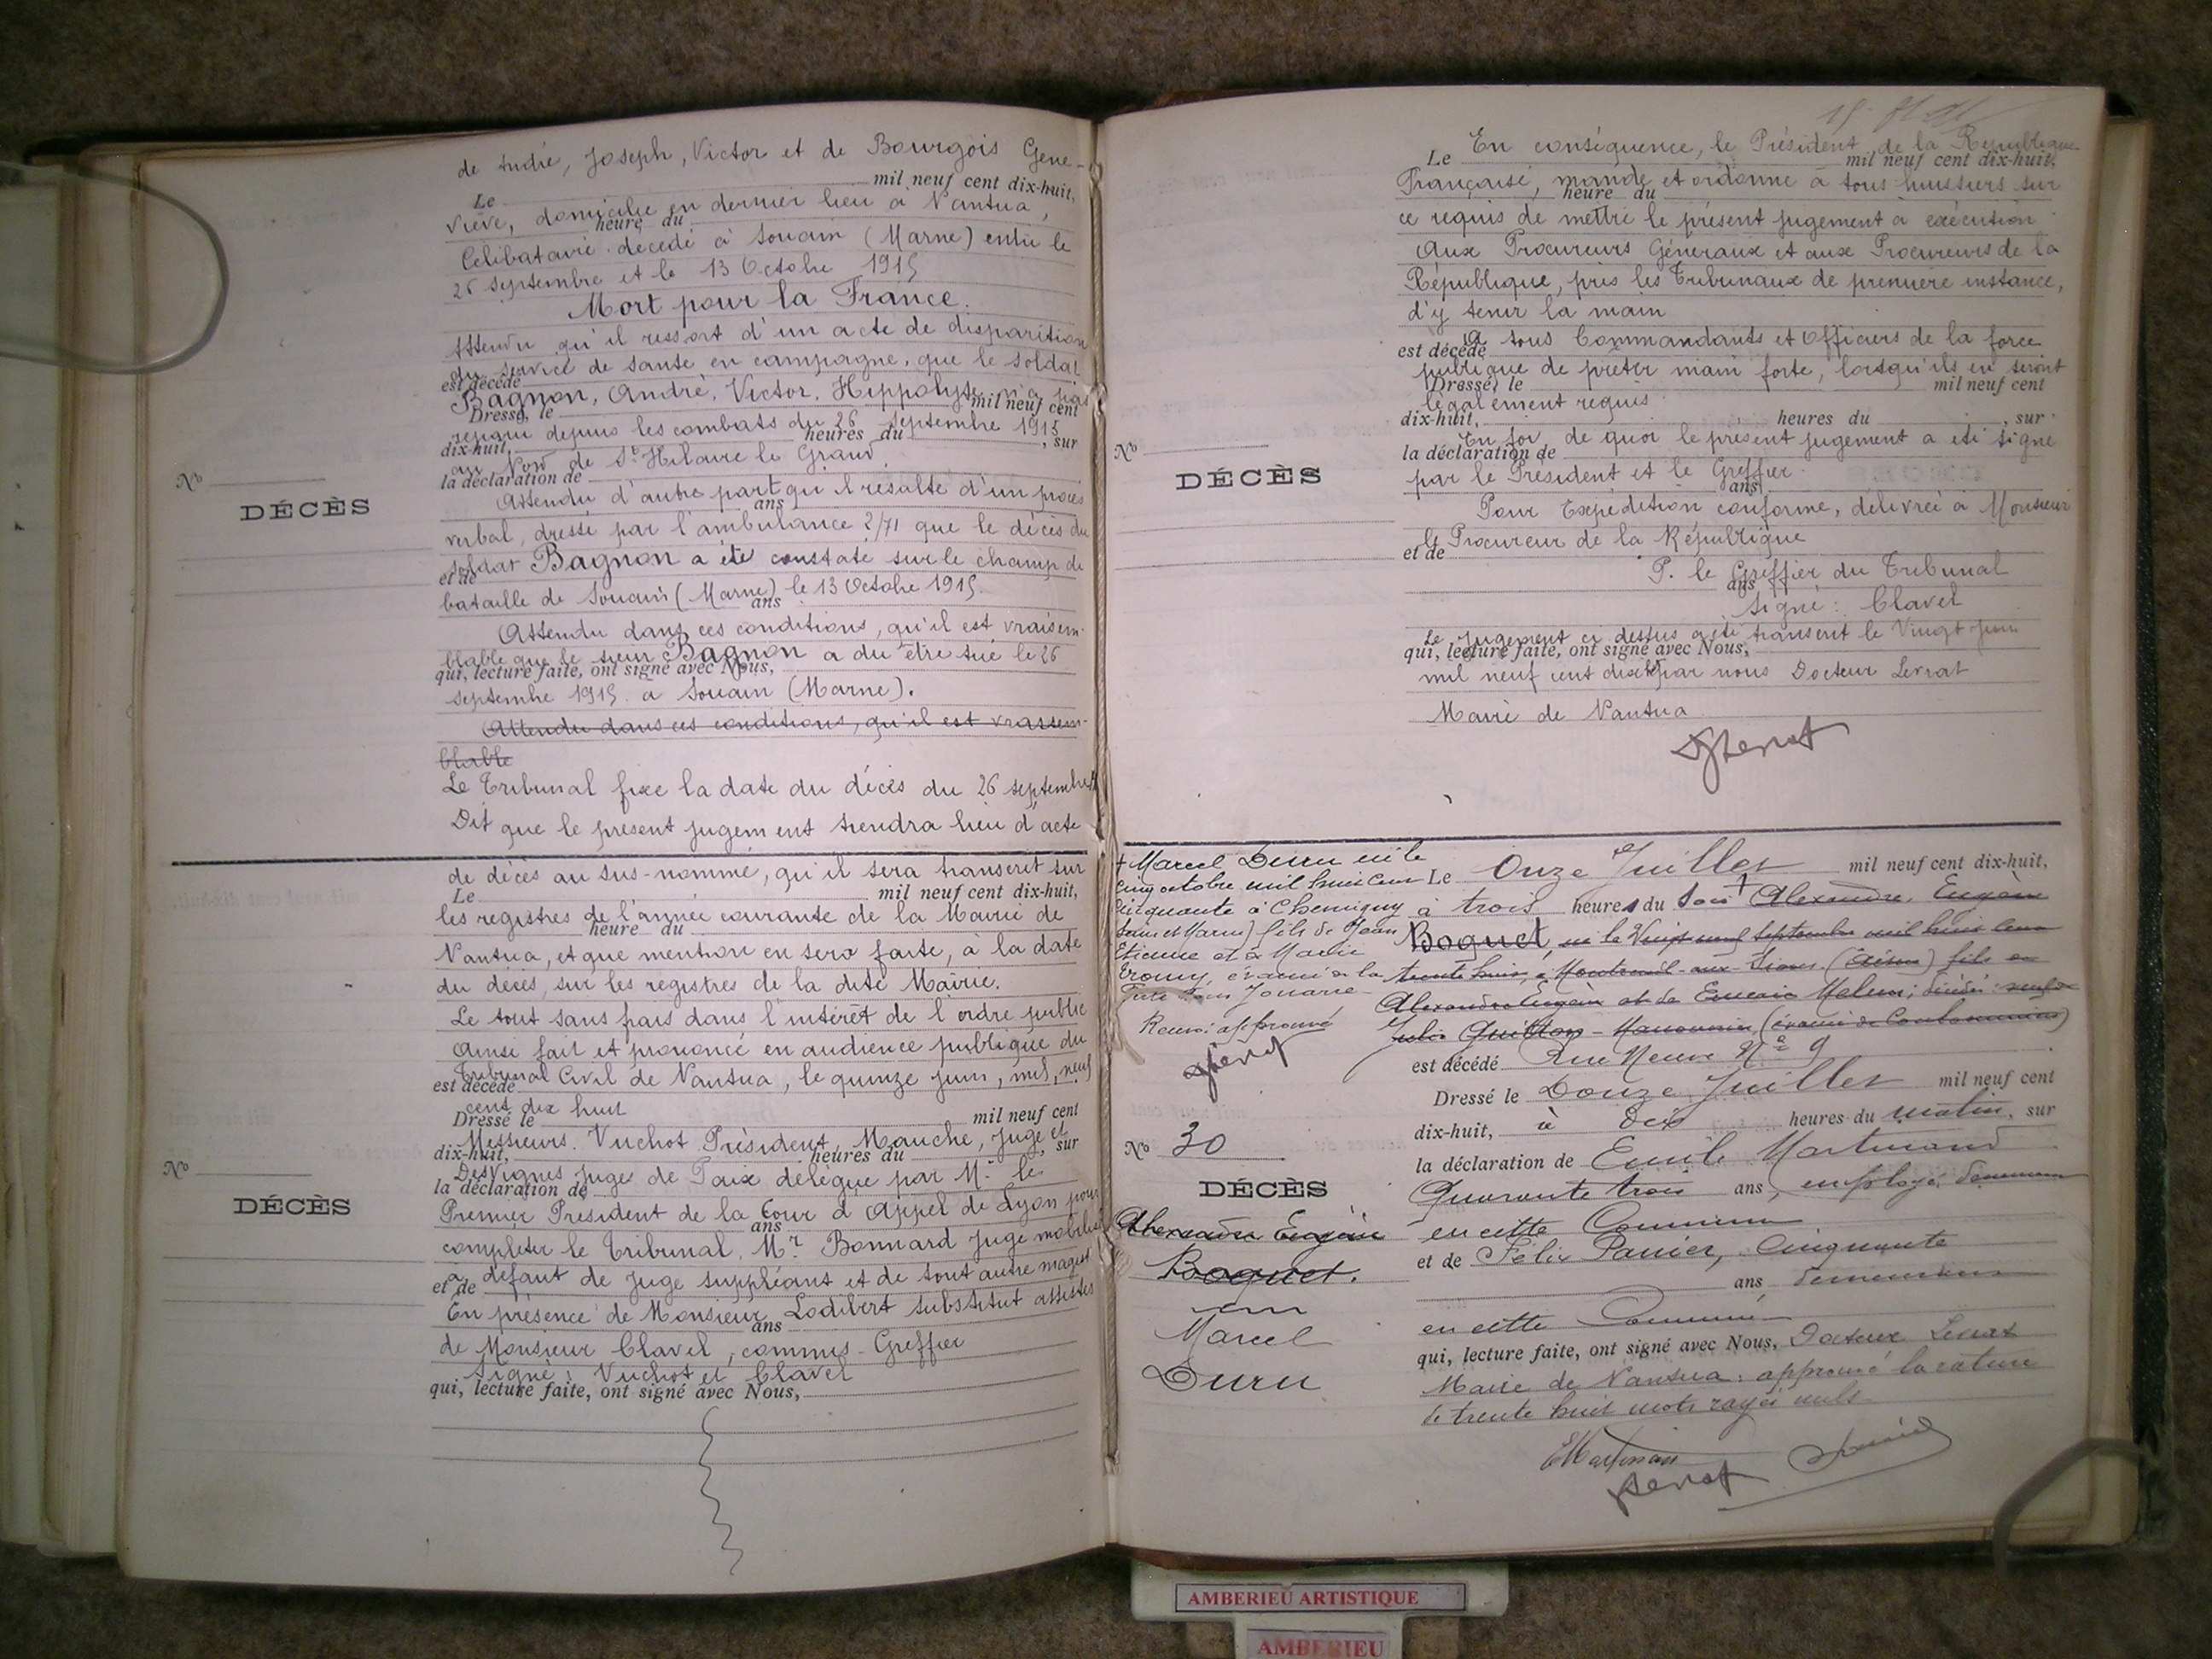 de André, Joseph, Victor et de Bourgois Gene-
Le mil neuf cent dix-huit,
viève, domicilié en dernier lieu à Nantua,
heure du
Célibataire décédé à Souain (Marne) entre le
26 septembre et le 13 Octobre 1915
Mort pour la France.
Attendu qu'il ressort d'un acte de disparition
du service de santé en campagne, que le soldat
est décédé
Bagnon, André, Victor, Hippolyte n'a pas
Dressé, le mil neuf cent
reparu depuis les combats du 26 septembre 1915
dix-huit, heures du , sur
au Nord de St Hilaire le Grand
la déclaration de
Attendu d'autre part qu'il résulte d'un procès
ans
verbal, dressé par l'ambulance 2/71 que le décès du
soldat Bagnon a été constaté sur le champ de
et de
bataille de Souain (Marne) le 13 Octobre 1915.
ans
Attendu dans ces conditions, qu'il est vraisem-
blable que le sieur Bagnon a du être tué le 26
qui, lecture faite, ont signé avec Nous,
septembre 1915 a Souain (Marne).
Attendu dans ces conditions, qu'il est vraisem-
blable
Le Tribunal fixe la date du décès du 26 septembre
Dit que le présent jugement tiendra lieu d'acte
No
DÉCÈS
de décès au sus-nommé, qu'il sera transcrit sur
Le mil neuf cent dix-huit,
les registres de l'année courante de la Mairie de
heure du
Nantua, et que mention en sera faite, à la date
du décès, sur les registres de la dite Mairie.
Le tout sans frais dans l'intérêt de l'ordre public
Ainsi fait et prononcé en audience publique du
Tribunal Civil de Nantua, le quinze juin, mil neuf
est décédé
cent dix huit
Dressé le mil neuf cent
Messieurs Vuchot Président, Mauche, juge et
dix-huit, heures du , sur
Desvignes juge de Paix délégué par Mr le
la déclaration de
Premier Président de la Cour d'Appel de Lyon pour
ans
completer le Tribunal, Mr Bonnard juge mobilisé
à défaut de juge suppléant et de tout autre magist
et de
En présence de Monsieur Lodibert substitut assistés
ans
de Monsieur Clavel, commis-Greffier
Signé: Vuchot et Clavel
qui, lecture faite, ont signé avec Nous,
No
DÉCÈS
En conséquence, le Président de la République
Le mil neuf cent dix-huit,
Française, mande et ordonne à tous huissiers sur
heure du
ce requis de mettre le présent jugement à exécution
Aux Procureurs Généraux et aux Procureurs de la
République, près les Tribunaux de première instance,
d'y tenir la main
A tous Commandants et Officiers de la force
est décédé
publique de prêter main forte, lorsqu'ils en seront
Dressé, le mil neuf cent
légalement requis
dix-huit, heures du , sur
En foi de quoi le présent jugement a été signé
la déclaration de
par le Président et le Greffier
ans
Pour Expédition conforme, délivrée à Monsieur
le Procureur de la République
et de
P. le Greffier du Tribunal
ans
signé: Clavel
Le jugement ci dessus a été transcrit le Vingt juin
qui, lecture faite, ont signé avec Nous,
mil neuf cent dix huit par nous Docteur Levrat
Maire de Nantua
No
DÉCÈS
+ Marcel Duru né le
cinq octobre mil huit cent
cinquante à Chamigny
(Seine et Marne) fils de Jean
Etienne et de Marie
évacué de la
Ferté sous Jouarre
Renvoi approuvé
Levrat
No 30
DÉCÈS
Alexandre Eugène
Boquet.
Marcel
Duru
Le Onze Juillet mil neuf cent dix-huit,
à trois heures du soir + Alexandre Eugène
Boquet, né le Vingt neuf septembre mil huit cent
trente huit, à Montreuil-aux-Lions (Aisne) fils de
Alexandre Eugène et de
est décédé Rue Neuve No 9
Dressé le Douze Juillet mil neuf cent
dix-huit, à Dix heures du matin, sur
la déclaration de Emile Martinand
Quarante trois ans, employé, demeurant
en cette Commune
et de Félix Panier, Cinquante
ans demeurant
en cette Commune
qui, lecture faite, ont signé avec Nous, Docteur Levrat
Maire de Nantua. approuvé la rature
de trente huit mots rayés nuls
EMartinand
Levrat
AMBERIEU ARTISTIQUE
AMBERIEU